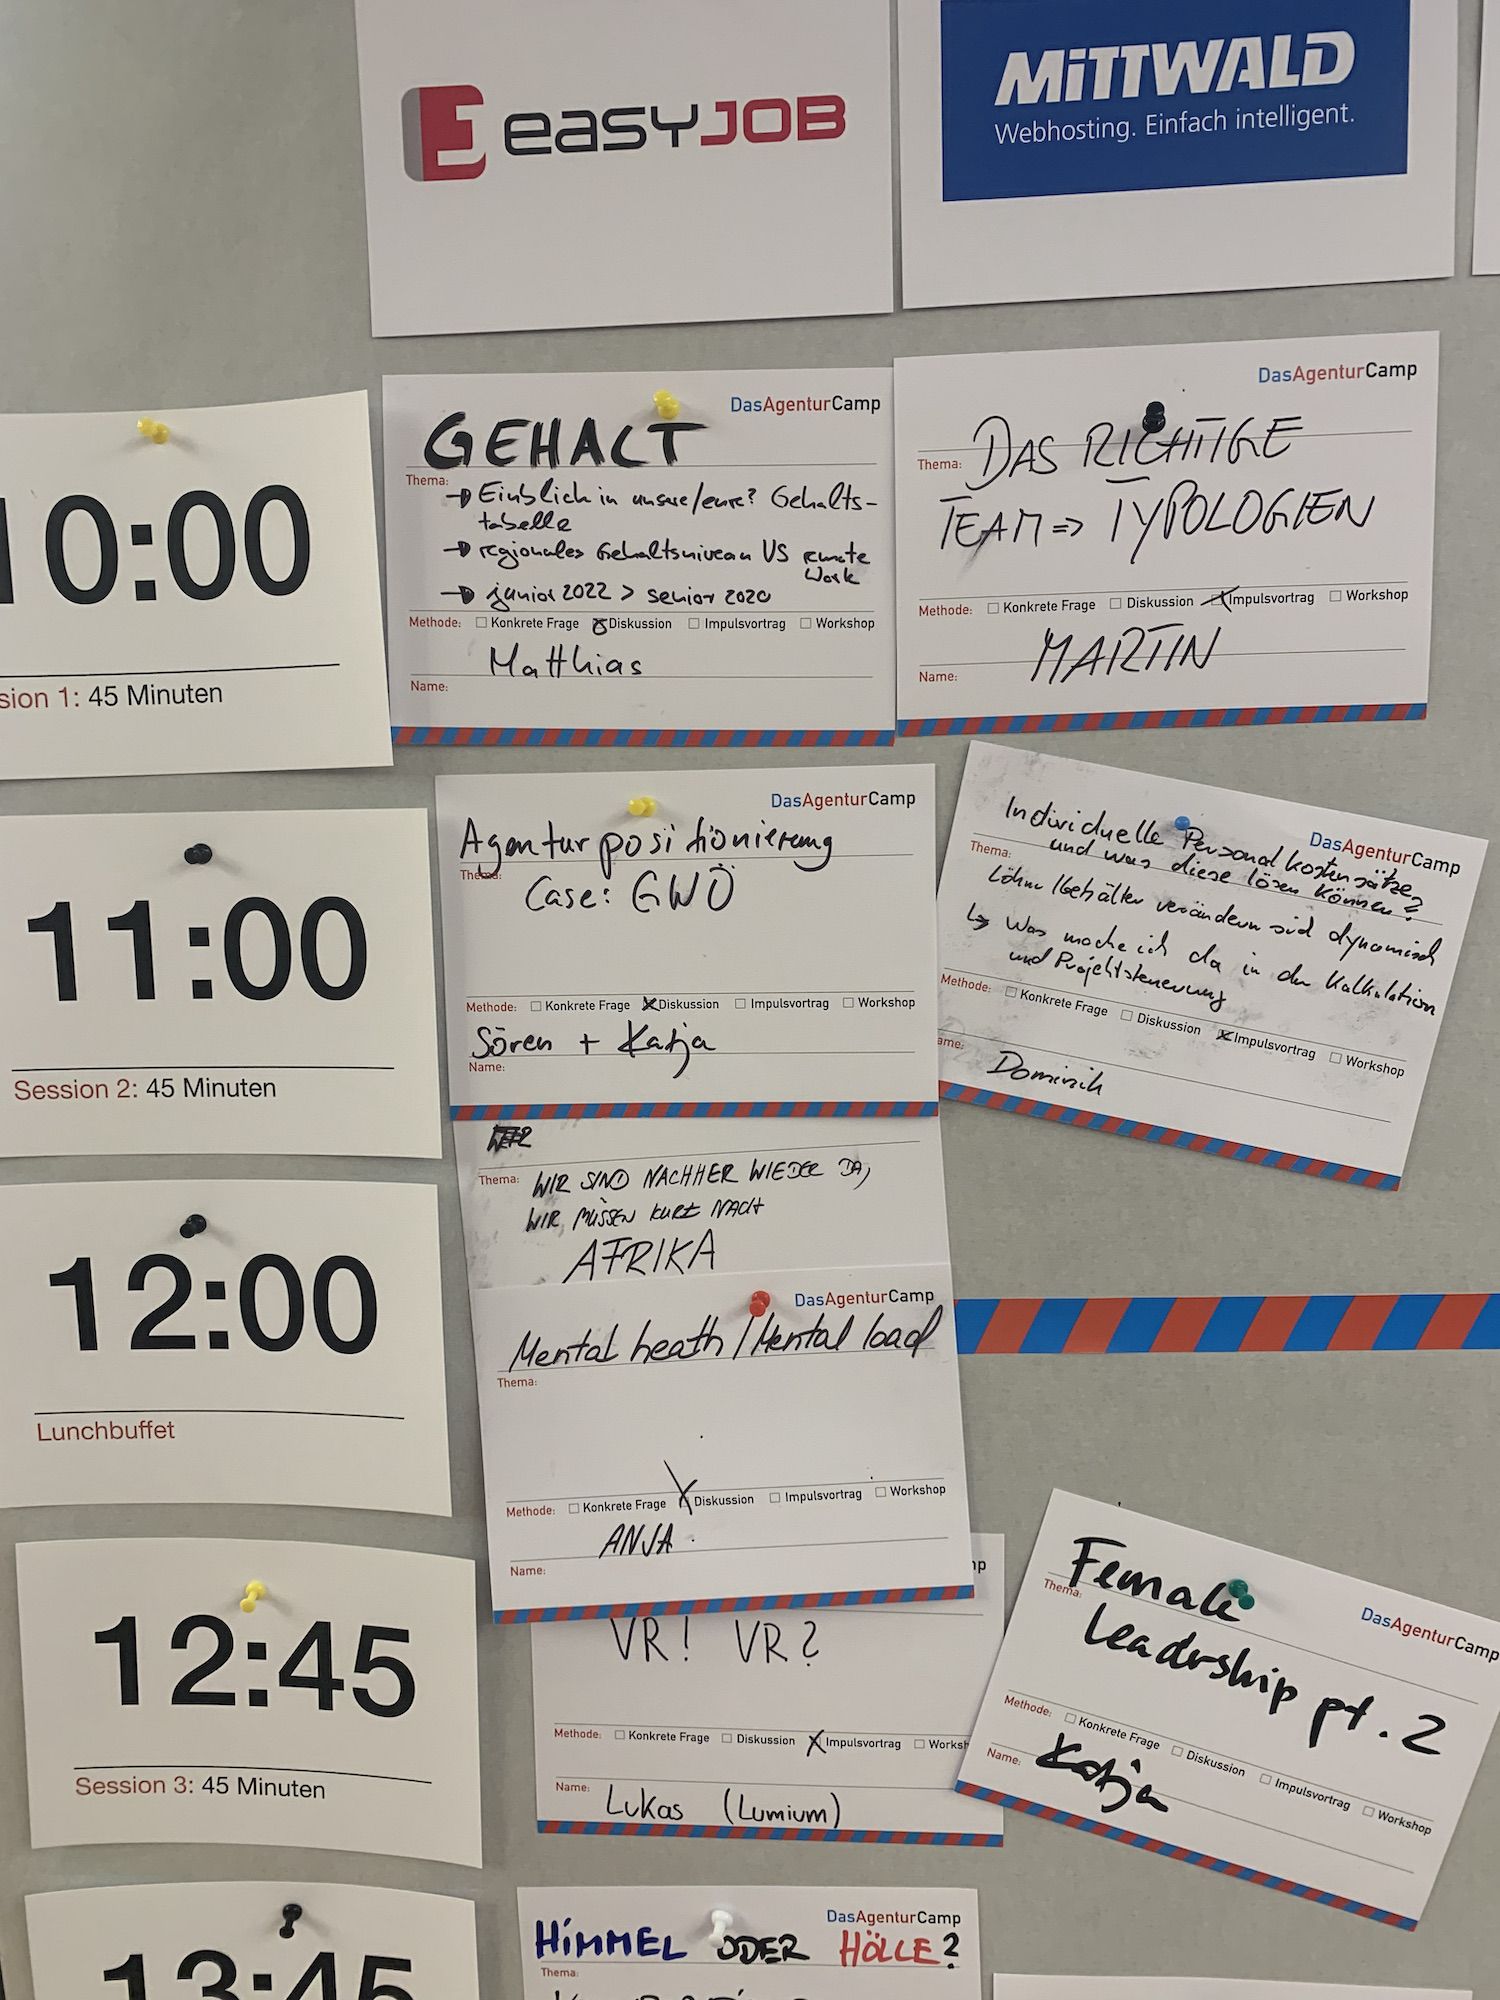 easyJOB
MiTTWALD
Webhosting. Einfach intelligent.
10:00
sion 1: 45 Minuten
DasAgenturCamp
GEHALT
Thema:
→ Einblick in unsere/eure? Gehalts-
tabelle
→ regionales Gehaltsniveau VS remote
Work
→ junior 2022 > senior 2020
Methode: Konkrete Frage Diskussion Impulsvortrag Workshop
Matthias
Name:
DasAgenturCamp
DAS RICHTIGE
Thema:
TEAM => TYPOLOGIEN
Methode: Konkrete Frage Diskussion Impulsvortrag Workshop
MARTIN
Name:
11:00
Session 2: 45 Minuten
DasAgenturCamp
Agenturpositionierung
Thema:
Case: GWÖ
Methode: Konkrete Frage Diskussion Impulsvortrag Workshop
Sören + Katja
Name:
DasAgenturCamp
Individuelle Personalkostensätze,
Thema:
und was diese lösen können?
Löhne/Gehälter verändern sich dynamisch
↳ Was mache ich da in der Kalkulation
und Projektsteuerung
Methode: Konkrete Frage Diskussion Impulsvortrag Workshop
ame:
Dominik
Thema:
WIR SIND NACHHER WIEDER DA,
WIR MÜSSEN KURZ NACH
AFRIKA
12:00
Lunchbuffet
DasAgenturCamp
Mental heath / Mental load
Thema:
Methode: Konkrete Frage Diskussion Impulsvortrag Workshop
ANJA
Name:
12:45
Session 3: 45 Minuten
mp
VR! VR?
Methode: Konkrete Frage Diskussion Impulsvortrag Worksh
Name:
Lukas (Lumium)
DasAgenturCamp
Female
Thema:
Leadership pt. 2
Methode: Konkrete Frage Diskussion Impulsvortrag Workshop
Name:
Katja
13:45
DasAgenturCamp
HiMMEL ODER HÖLLE?
Thema: